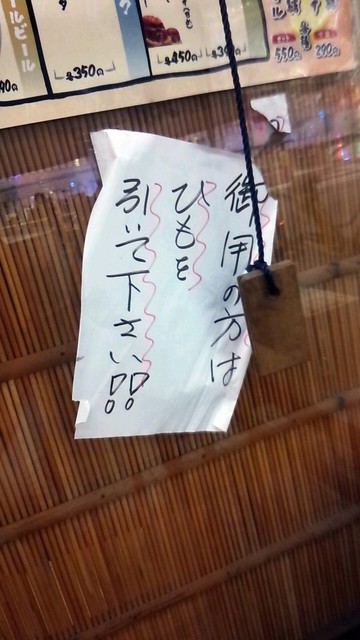 ールビール
90円
¥350円
¥450円
550円
200円
御用の方は
ひもを
引いて下さい!!